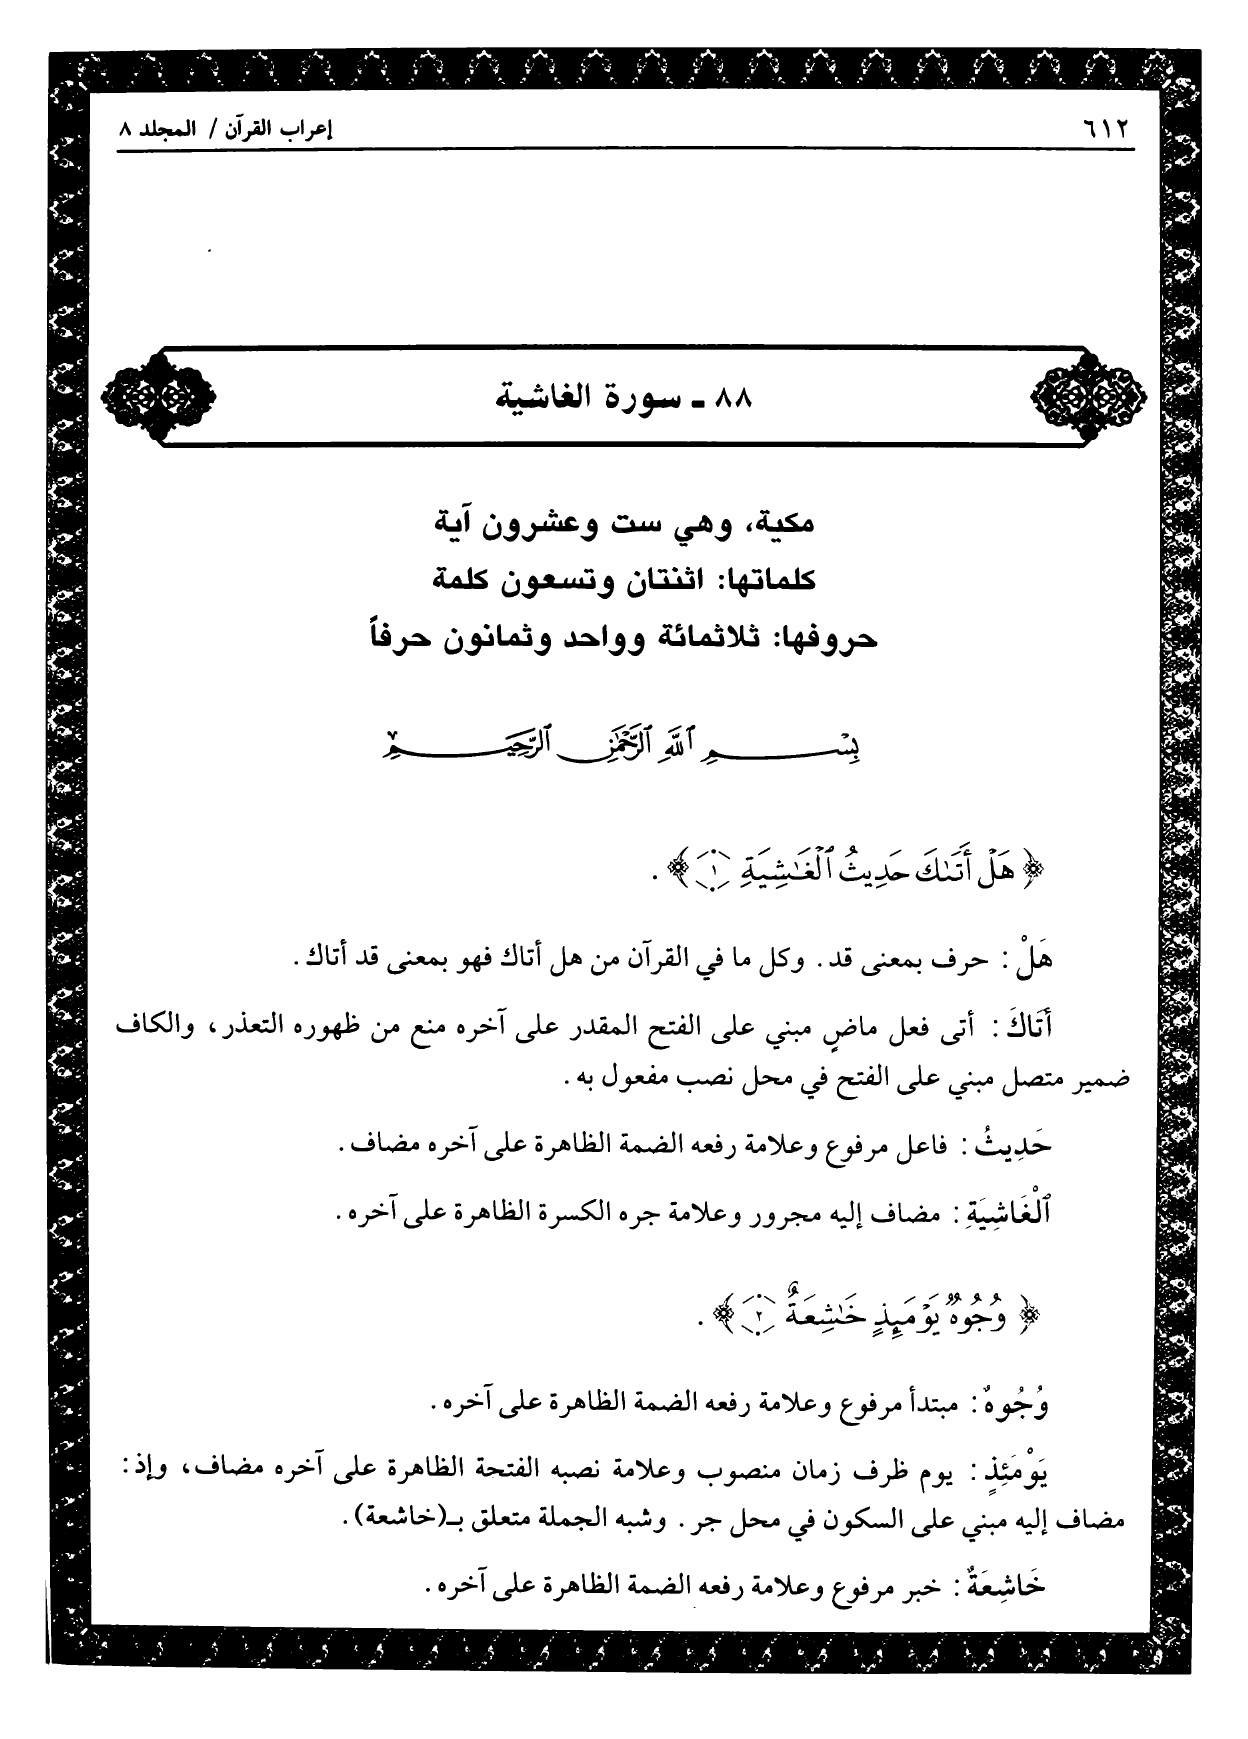 ٦١٢
إعراب القرآن / المجلد ٨
٨٨ ـ سورة الغاشية
مكية، وهي ست وعشرون آية
كلماتها: اثنتان وتسعون كلمة
حروفها: ثلاثمائة وواحد وثمانون حرفاً
بِسْمِ ٱللَّهِ ٱلرَّحْمَٰنِ ٱلرَّحِيمِ
﴿ هَلْ أَتَىٰكَ حَدِيثُ ٱلْغَٰشِيَةِ ١ ﴾ .
هَلْ : حرف بمعنى قد . وكل ما في القرآن من هل أتاك فهو بمعنى قد أتاك .
أَتَاكَ : أتى فعل ماضٍ مبني على الفتح المقدر على آخره منع من ظهوره التعذر، والكاف
ضمير متصل مبني على الفتح في محل نصب مفعول به .
حَدِيثُ : فاعل مرفوع وعلامة رفعه الضمة الظاهرة على آخره مضاف .
ٱلْغَاشِيَةِ : مضاف إليه مجرور وعلامة جره الكسرة الظاهرة على آخره .
﴿ وُجُوهٌ يَوْمَئِذٍ خَٰشِعَةٌ ٢ ﴾ .
وُجُوهٌ : مبتدأ مرفوع وعلامة رفعه الضمة الظاهرة على آخره .
يَوْمَئِذٍ : يوم ظرف زمان منصوب وعلامة نصبه الفتحة الظاهرة على آخره مضاف، وإذ :
مضاف إليه مبني على السكون في محل جر . وشبه الجملة متعلق بـ(خاشعة) .
خَاشِعَةٌ : خبر مرفوع وعلامة رفعه الضمة الظاهرة على آخره .